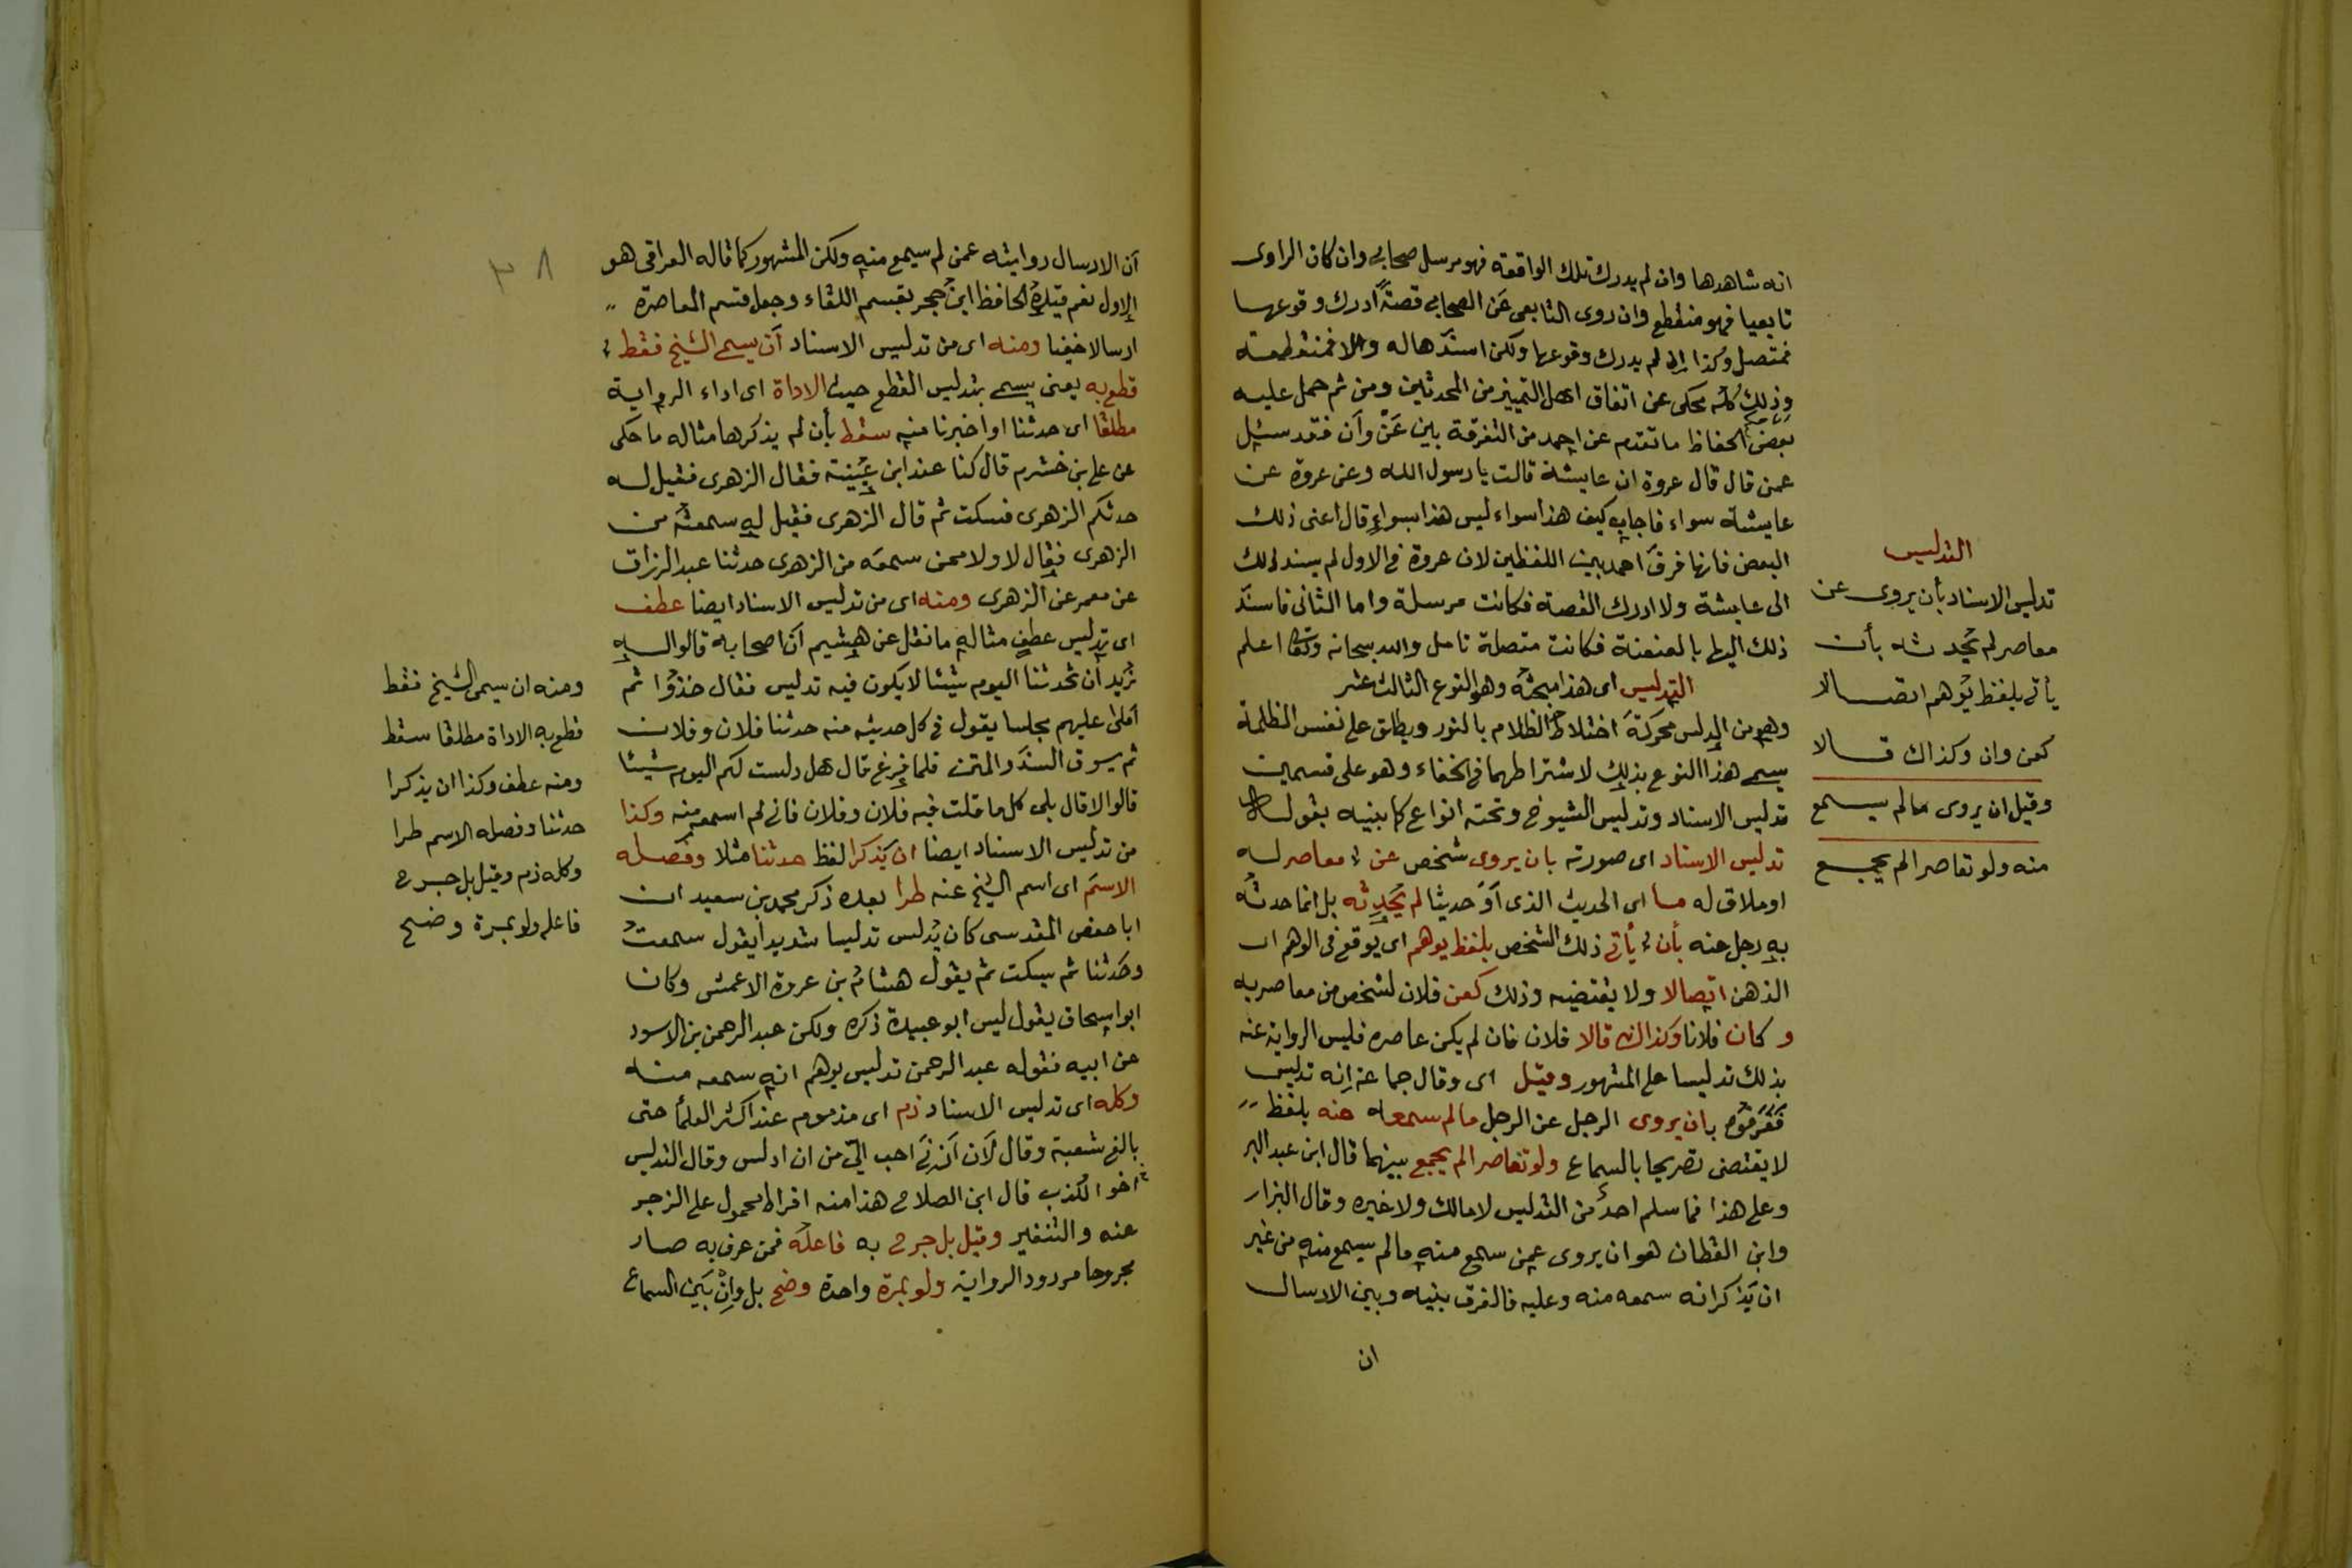 انه شاهدها وان لم يدرك تلك الواقعة فهو مرسل صحابي وان كان الراوى
تابعيا فهو منقطع وان روى التابعى عن الصحابي قصةً ادرك وقوعها
فمتصل وكذا ان لم يدرك وقوعها ولكن اسندها له والا فمنقطعة
وذلك كله محكى عن اتفاق اهل التمييز من المحدثين ومن ثم حمل عليه
بعض الحفاظ ما تقدم عن احمد من التفرقة بين عَنْ وأن فقد سئل
عمن قال قال عروة ان عايشة قالت يا رسول الله وعن عروة عن
عايشة سواء فاجاب كيف هذا سواء ليس هذا بسواءٍ قال اعنى ذلك
البعض فانها فرق احمد بين اللفظين لان عروة في الاول لم يسند ذلك
الى عايشة ولا ادرك القصة فكانت مرسلة واما الثانى فاسند
ذلك اليها بالعنعنة فكانت متصلة تامل والله سبحانه وتعالى اعلم
التدليس اى هذا مبحثه وهو النوع الثالث عشر
وهو من الدلس محركةً اختلاط الظلام بالنور ويطلق على نفس الظلمة
يسمى هذا النوع بذلك لاشتراطهما في الخفاء وهو على قسمين
تدليس الاسناد وتدليس الشيوخ وتحته انواع كما بينه بقوله
تدليس الاسناد اى صورته بان يروى شخص عن معاصر له
او ملاق له ما اى الحديث الذى أو حديثا لم يُحدِثه بل انما حدثه
به رجل عنه بأن يأتى ذلك الشخص بلفظ يوهم اى يوقع فى الوهم اى
الذهن اتصالا ولا يقتضيه وذلك كعن فلان لشخص من معاصريه
و كان فلانا وكذاك قالا فلان فان لم يكن عاصره فليس الرواية عنه
بذلك تدليسا على المشهور وقيل اى وقال جماعة انه تدليس
فعرفوه بان يروى الرجل عن الرجل ما لم سمعه منه بلفظ
لا يقتضى تصريحا بالسماع ولو تعاصرا لم يجمع بينهما قال ابن عبد البر
وعلى هذا فما سلم احدٌ من التدليس لا مالك ولا غيره وقال البزار
وابن القطان هو ان يروى عمن سمع منه ما لم يسمع منه من غير
ان يَذكر انه سمعه منه وعليه فالفرق بينه وبين الارسال
ان
التدليس
تدليس الاسناد بأن يروى عن
معاصر لم يُحدثه بأن
يأتى بلفظ يُوهم اتصالا
كعن وان وكذاك قالا
وقيل ان يروى ما لم يسمع
منه ولو تعاصرا لم يجمع
٣٨
أن الارسال روايته عمن لم يسمع منه ولكن المشهور كما قاله العراقى هو
الاول نعم قيده الحافظ ابن حجر بقسم اللقاء وجعل قسم المعاصرة
ارسالا خفيا ومنه اى من تدليس الاسناد أن يسمى الشيخ فقط
قطع به يعنى يسمى بتدليس القطع حيث الاداة اى اداء الرواية
مطلقا اى حدثنا او اخبرنا منه سقط بأن لم يذكرها مثاله ما حكى
عن على بن خشرم قال كنا عند ابن عيينة فقال الزهرى فقيل له
حدثكم الزهرى فسكت ثم قال الزهرى فقيل له سمعتَه من
الزهرى فقال لا ولا ممن سمعه من الزهرى حدثنا عبد الرزاق
عن معمر عن الزهرى ومنه اى من تدليس الاسناد ايضا عطف
اى تدليس عطفٍ مثاله ما نقل عن هشيم أن اصحابه قالوا له
نُريد أن تحدثنا اليوم شيئا لا يكون فيه تدليس فقال خذوا ثم
أملى عليهم مجلسا يقول في كل حديث منه حدثنا فلان وفلان
ثم يسوق السند والمتن فلما فرغ قال هل دلست لكم اليوم شيئا
قالوا لا قال بلى كل ما قلت فيه فلان وفلان فانى لم اسمعه منه وكذا
من تدليس الاسناد ايضا ان يَذكرا لفظ حدثنا مثلا وفصله
الاسمَ اى اسم الشيخ عنه طرا بعده ذكر محمد بن سعيد ان
ابا حفص المقدسى كان يُدلس تدليسا شديدا يقول سمعتُ
وحَدثنا ثم يسكت ثم يقول هشام بن عروة الاعمش وكان
ابو اسحاق يقول ليس ابو عبيدة ذكره ولكن عبد الرحمن بن الاسود
عن ابيه فقوله عبد الرحمن تدليس يوهم انه سمعه منه
وكله اى تدليس الاسناد ذم اى مذموم عند اكثر العلمأ حتى
بالغ شعبة وقال لأن أزنى احب الىّ من ان ادلس وقال التدليس
اخو الكذب قال ابن الصلاح هذا منه افراط محمول على الزجر
عنه والتنفير وقيل بل جرح به فاعله فمن عرف به صار
مجروحا مردود الرواية ولو بمرة واحدة وضح بل وانْ بَيّن السماع
ومنه ان يسمى الشيخ فقط
قطع به الاداة مطلقا سقط
ومنه عطف وكذا ان يذكرا
حدثنا وفصله الاسم طرا
وكله ذم وقيل بل جرح
فاعله ولو بمرة وضح